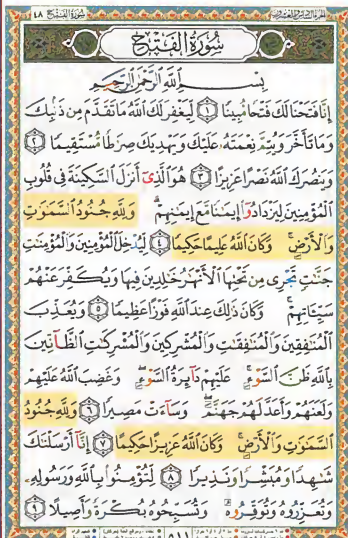 سُورَةُ الفَتْحِ ٤٨
سُورَةُ الفَتْحِ
بِسْمِ ٱللَّهِ ٱلرَّحْمَٰنِ ٱلرَّحِيمِ
إِنَّا فَتَحْنَا لَكَ فَتْحًا مُّبِينًا ١ لِّيَغْفِرَ لَكَ ٱللَّهُ مَا تَقَدَّمَ مِن ذَنۢبِكَ
وَمَا تَأَخَّرَ وَيُتِمَّ نِعْمَتَهُۥ عَلَيْكَ وَيَهْدِيَكَ صِرَٰطًا مُّسْتَقِيمًا ٢
وَيَنصُرَكَ ٱللَّهُ نَصْرًا عَزِيزًا ٣ هُوَ ٱلَّذِىٓ أَنزَلَ ٱلسَّكِينَةَ فِى قُلُوبِ
ٱلْمُؤْمِنِينَ لِيَزْدَادُوٓا۟ إِيمَٰنًا مَّعَ إِيمَٰنِهِمْ ۗ وَلِلَّهِ جُنُودُ ٱلسَّمَٰوَٰتِ
وَٱلْأَرْضِ ۚ وَكَانَ ٱللَّهُ عَلِيمًا حَكِيمًا ٤ لِّيُدْخِلَ ٱلْمُؤْمِنِينَ وَٱلْمُؤْمِنَٰتِ
جَنَّٰتٍ تَجْرِى مِن تَحْتِهَا ٱلْأَنْهَٰرُ خَٰلِدِينَ فِيهَا وَيُكَفِّرَ عَنْهُمْ
سَيِّـَٔاتِهِمْ ۚ وَكَانَ ذَٰلِكَ عِندَ ٱللَّهِ فَوْزًا عَظِيمًا ٥ وَيُعَذِّبَ
ٱلْمُنَٰفِقِينَ وَٱلْمُنَٰفِقَٰتِ وَٱلْمُشْرِكِينَ وَٱلْمُشْرِكَٰتِ ٱلظَّآنِّينَ
بِٱللَّهِ ظَنَّ ٱلسَّوْءِ ۚ عَلَيْهِمْ دَآئِرَةُ ٱلسَّوْءِ ۖ وَغَضِبَ ٱللَّهُ عَلَيْهِمْ
وَلَعَنَهُمْ وَأَعَدَّ لَهُمْ جَهَنَّمَ ۖ وَسَآءَتْ مَصِيرًا ٦ وَلِلَّهِ جُنُودُ
ٱلسَّمَٰوَٰتِ وَٱلْأَرْضِ ۚ وَكَانَ ٱللَّهُ عَزِيزًا حَكِيمًا ٧ إِنَّآ أَرْسَلْنَٰكَ
شَٰهِدًا وَمُبَشِّرًا وَنَذِيرًا ٨ لِّتُؤْمِنُوا۟ بِٱللَّهِ وَرَسُولِهِۦ
وَتُعَزِّرُوهُ وَتُوَقِّرُوهُ ۚ وَتُسَبِّحُوهُ بُكْرَةً وَأَصِيلًا ٩